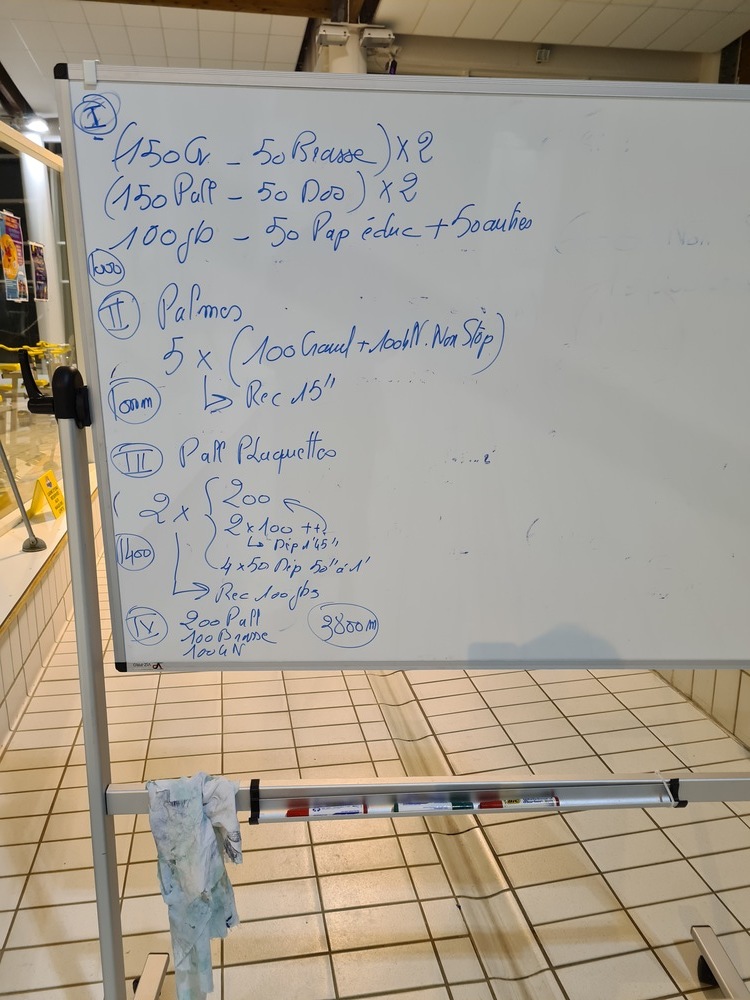 I
(150Cr - 50 Brasse) x 2
(150 Pull - 50 Dos) x 2
100 gb - 50 Pap éduc + 50 autres
1000
II Palmes
5 x (100 Crawl + 100 4N. Non Stop)
1000m
↳ Rec 15"
III Pull Plaquettes
2 x { 200
2 x 100 ++
↳ Dép 1'45"
1400
4 x 50 Dép 50" à 1'
↳ Rec 100 gbs
IV 200 Pull
100 Brasse
100 4N
3800m